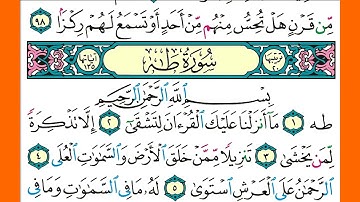 مِّن قَرْنٍ هَلْ تُحِسُّ مِنْهُم مِّنْ أَحَدٍ أَوْ تَسْمَعُ لَهُمْ رِكْزًا ٩٨
سُورَةُ طه
بِسْمِ اللَّهِ الرَّحْمَٰنِ الرَّحِيمِ
طه ١ مَا أَنزَلْنَا عَلَيْكَ الْقُرْءَانَ لِتَشْقَىٰ ٢ إِلَّا تَذْكِرَةً
لِّمَن يَخْشَىٰ ٣ تَنزِيلًا مِّمَّنْ خَلَقَ الْأَرْضَ وَالسَّمَٰوَٰتِ الْعُلَى ٤
الرَّحْمَٰنُ عَلَى الْعَرْشِ اسْتَوَىٰ ٥ لَهُ مَا فِي السَّمَٰوَٰتِ وَمَا فِي